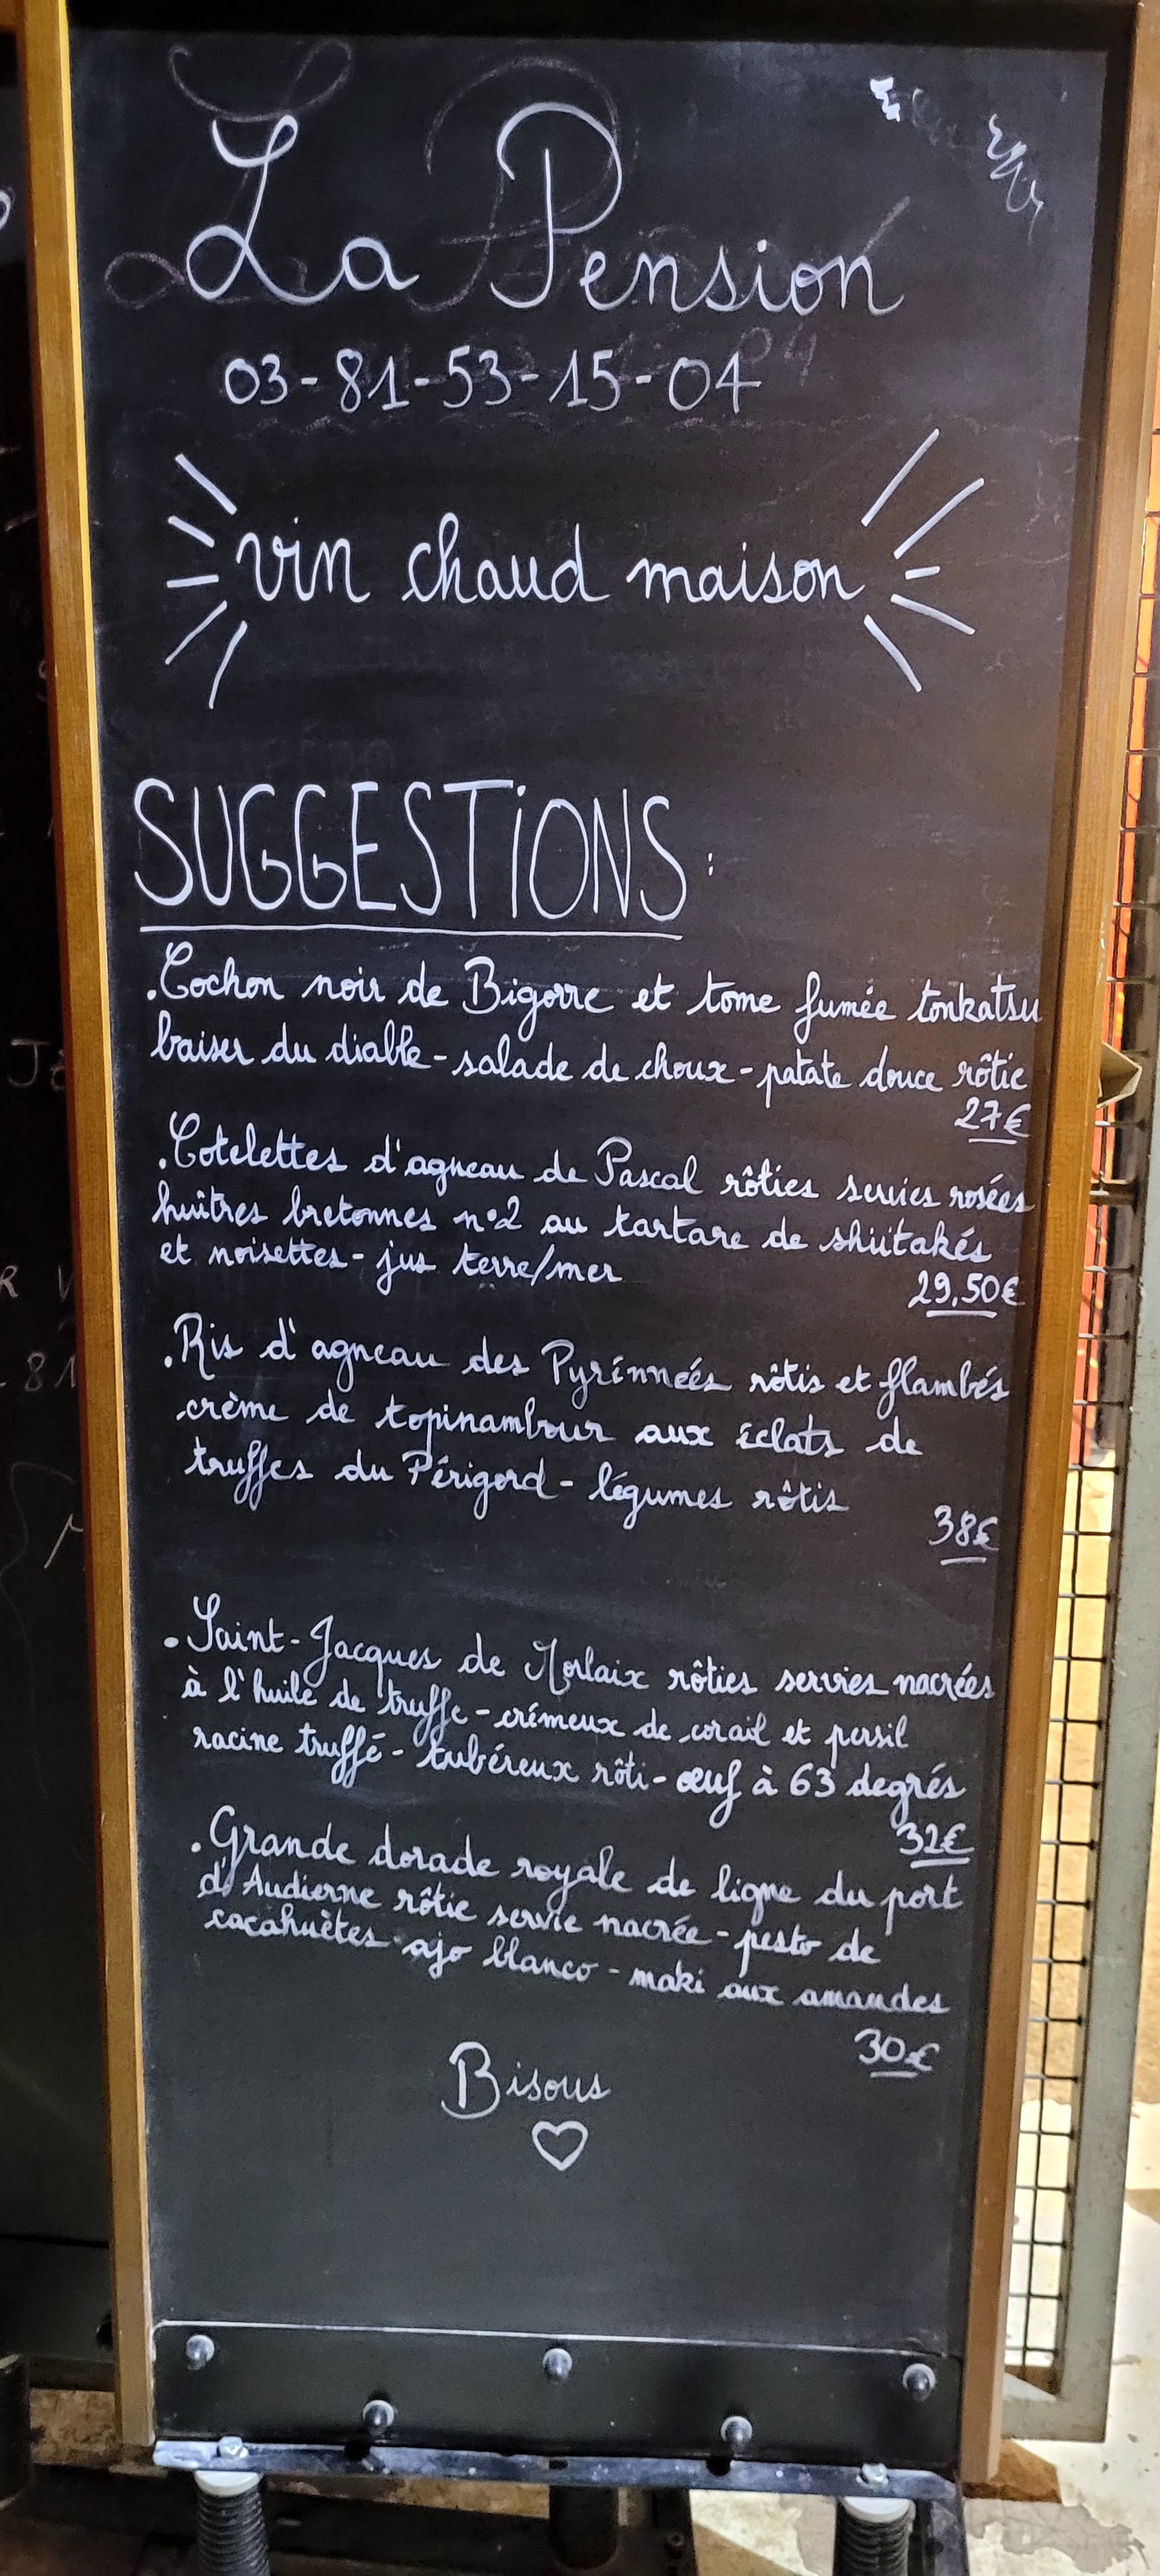 La Pension
03-81-53-15-04
vin chaud maison
SUGGESTiONS:
.Cochon noir de Bigorre et tome fumée tonkatsu
baiser du diable-salade de choux-patate douce rôtie
27€
.Cotelettes d'agneau de Pascal rôties servies rosées
huîtres bretonnes n°2 au tartare de shiitakés
et noisettes-jus terre/mer
29,50€
.Ris d'agneau des Pyrénneés rôtis et flambés
crème de topinambour aux éclats de
truffes du Périgord-légumes rôtis
38€
.Saint-Jacques de Morlaix rôties servies nacrées
à l'huile de truffe-crémeux de corail et persil
racine truffé-tubéreux rôti-œuf à 63 degrés
32€
.Grande dorade royale de ligne du port
d'Audierne rôtie servie nacrée-pesto de
cacahuètes ajo blanco-maki aux amandes
30€
Bisous